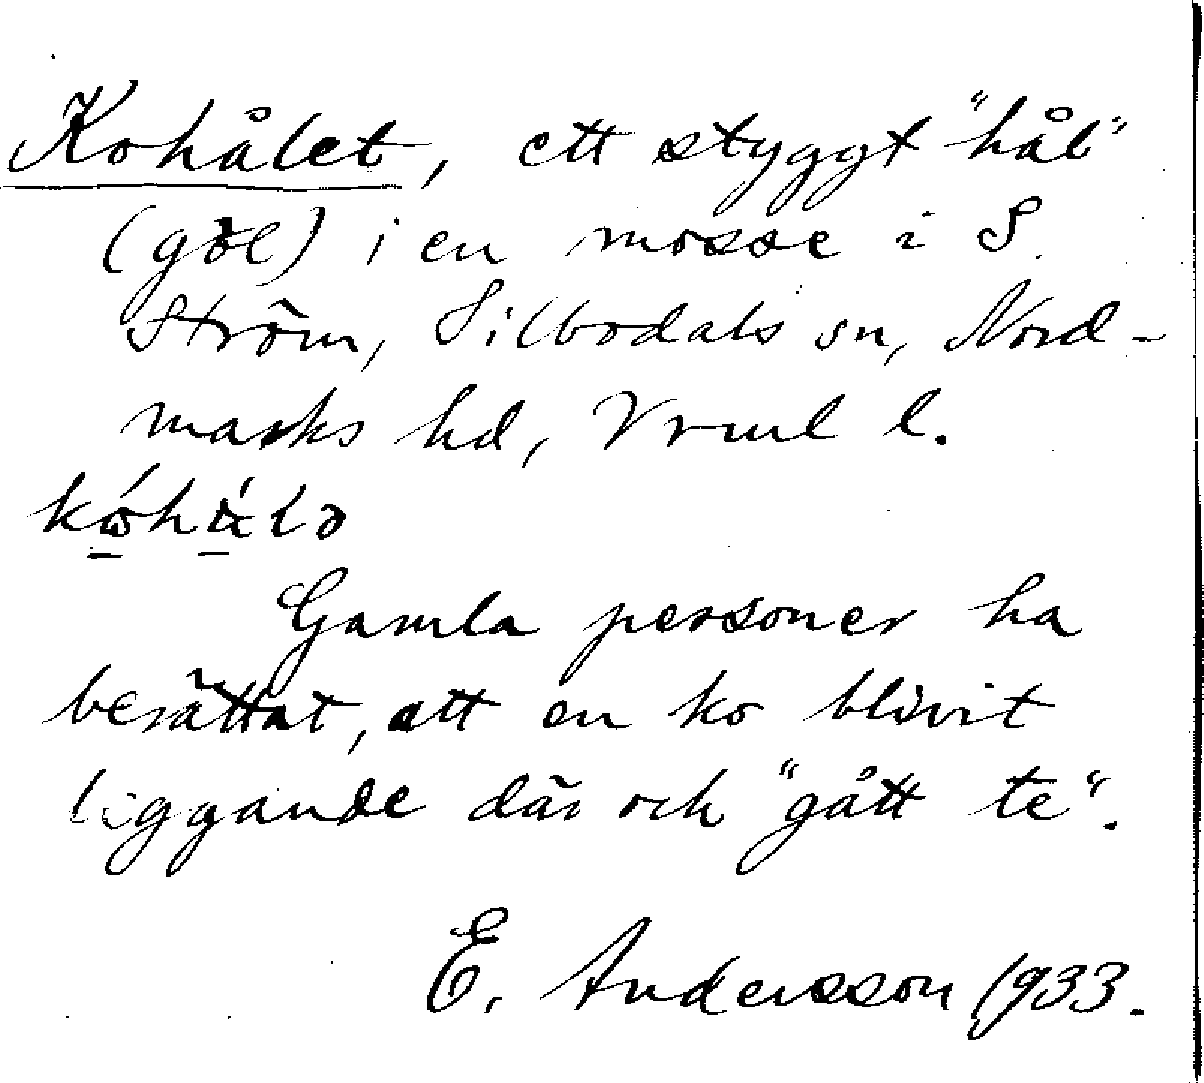 Kohålet, ett styggt "hål"
(göl) i en mosse i S.
Ström, Silbodals sn, Nord-
marks hd, Vrml l.
Gamla personer ha
berättat, att en ko blivit
liggande där och "gått te".
E. Andersson 1933.